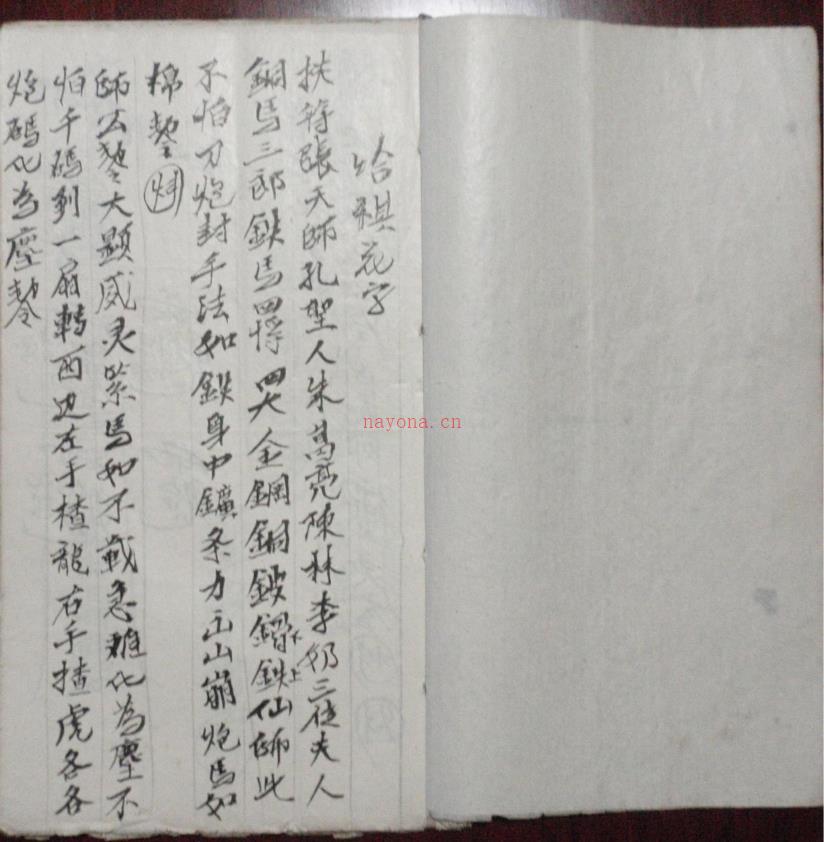 給棋花字
扶待張天師孔聖人朱葛亮陳林李奶三位夫人
銅馬三郎鉄馬四將四大金鋼銅鈸鐕下鉄上仙師此
不怕刀炮封手法如鉄身中鑛条力玉山崩炮馬如
棉
師公大顯威灵柴馬如不戰急难化為塵不
怕千碼到一扇轉西边左手楂龍右手揸虎各各
炮碼化為塵
nayona.cn